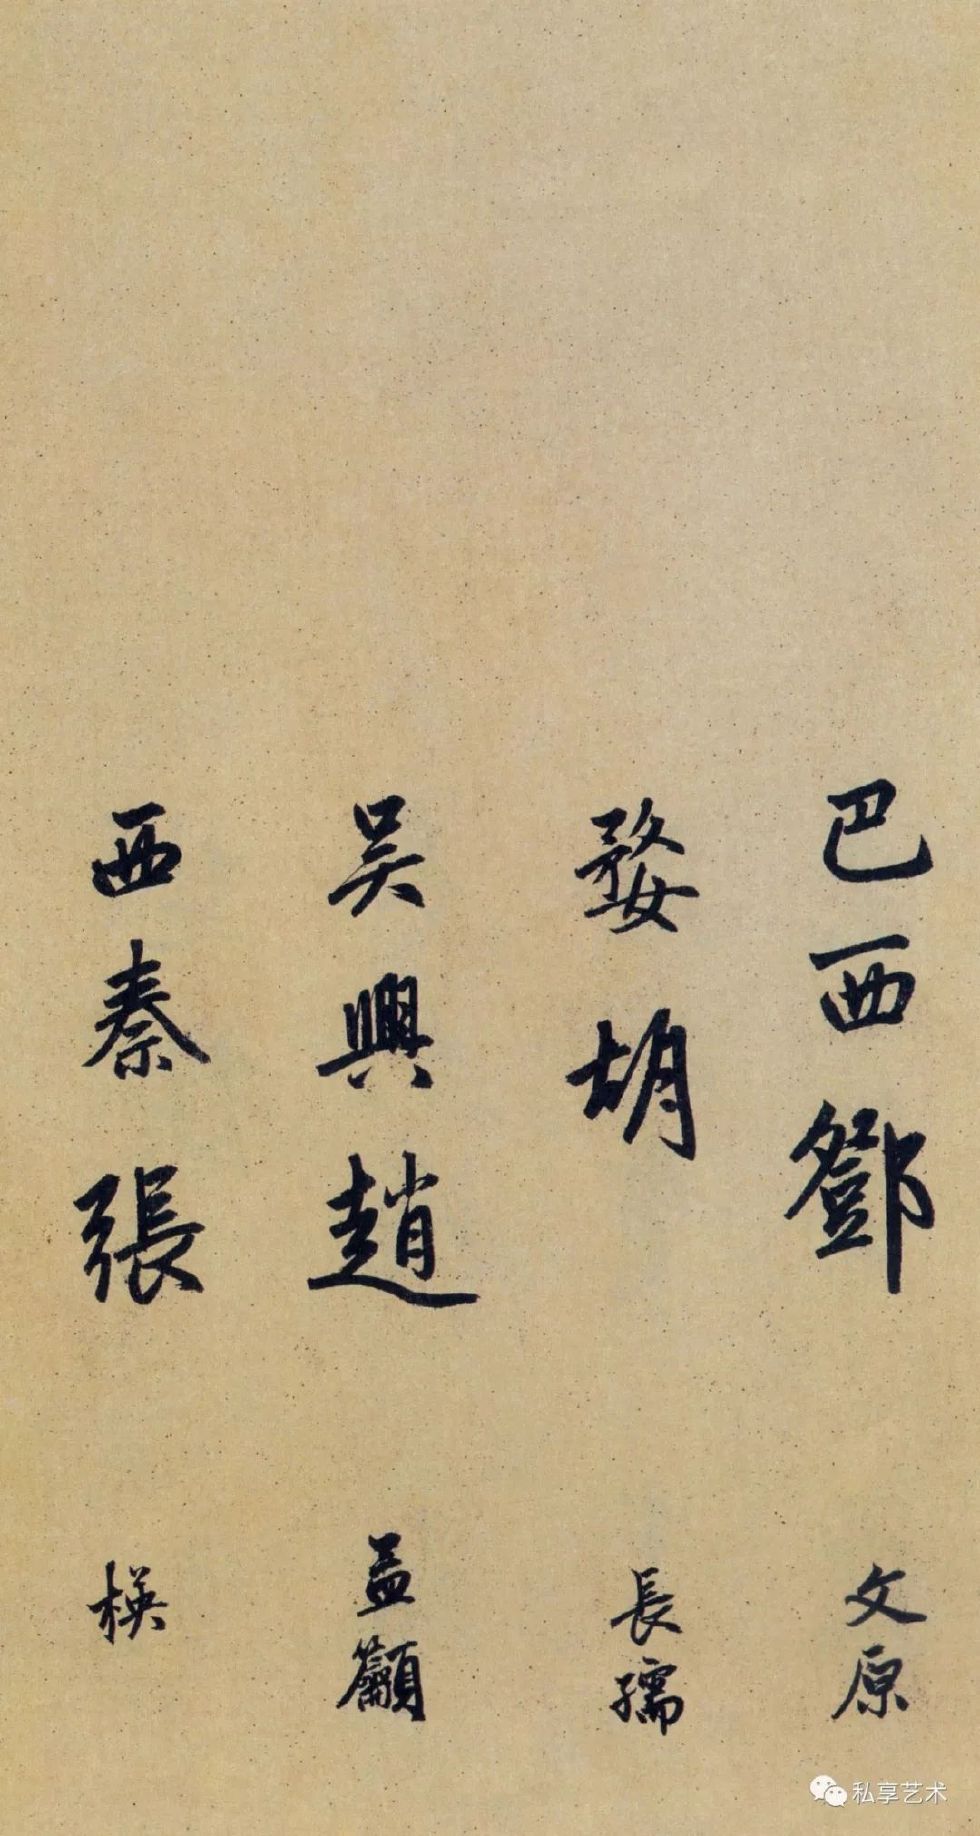 巴西鄧 文原
婺胡 長孺
吴興趙 孟籲
西秦張 楧
私享艺术